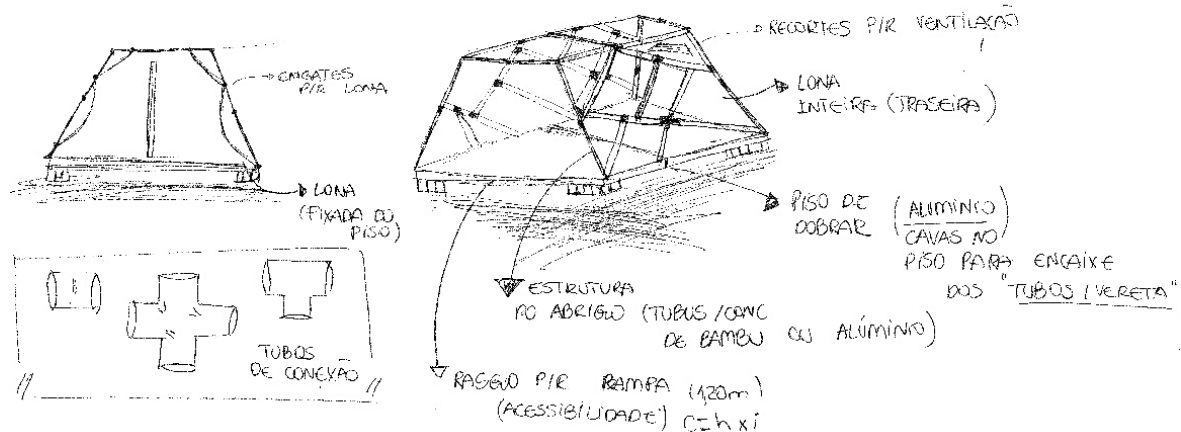 ENGATES
P/R LONA
LONA
(FIXADA OU
PISO)
TUBOS
DE CONEXÃO
RECORTES P/R VENTILAÇÃO
LONA
INTEIRA (TRASEIRA)
PISO DE
DOBRAR (ALUMÍNIO)
CAVAS NO
PISO PARA ENCAIXE
DOS "TUBOS / VERETA"
ESTRUTURA
DO ABRIGO (TUBUS / CONC
DE BAMBU OU ALÚMINIO)
RASGO P/R RAMPA (1,20m)
(ACESSIBILIDADE) C=h x i